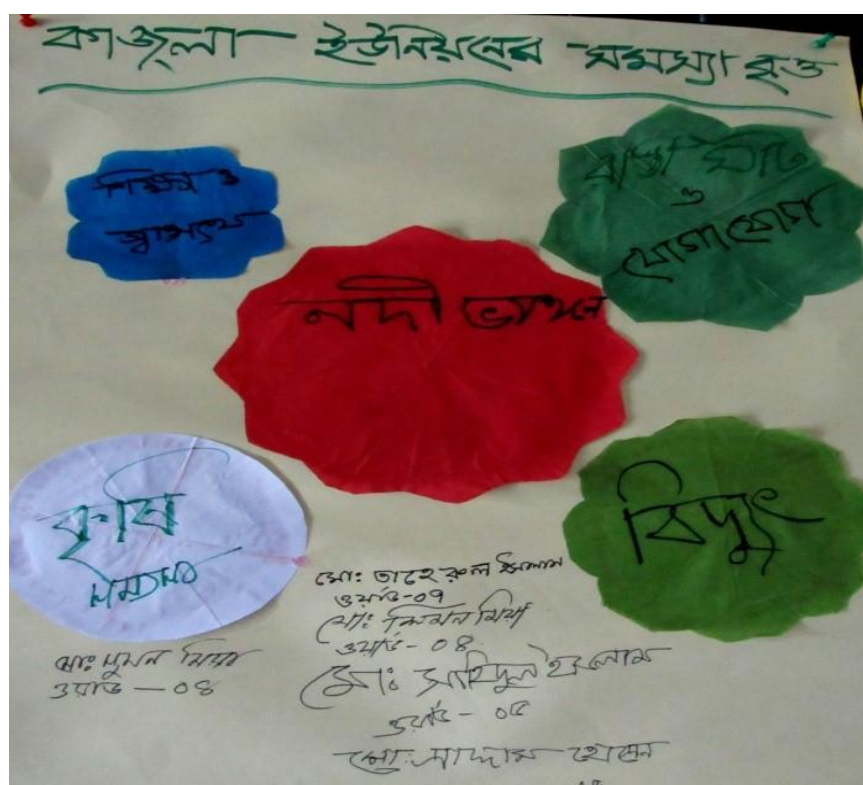 কাজলা ইউনিয়নের সমস্যা বৃত্ত
শিক্ষা ও
স্বাস্থ্য
রাস্তা ঘাট
ও
যোগাযোগ
নদী ভাঙ্গন
কৃষি
সমস্যা
বিদ্যুৎ
মোঃ তাহেরুল ইসলাম
ওয়ার্ড-০৭
মোঃ লিমন মিয়া
ওয়ার্ড - ০৪
মোঃ সুমন মিয়া
ওয়ার্ড - ০৪
মোঃ সাহিদুল ইসলাম
ওয়ার্ড - ০৫
মোঃ সাদ্দাম হোসেন